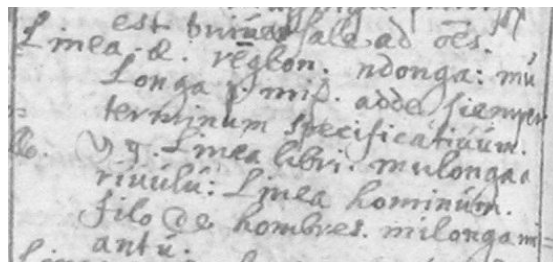 est vniuersale ad oẽs.
Linea. æ. rẽglon. ndonga: mu
Longa p. mil. adde siemper
terminum specificatiuũm.
vg. Linea libri. mulonga a
riuulú: Linea hominũm.
filo de hombres. milonga mi=
antú.